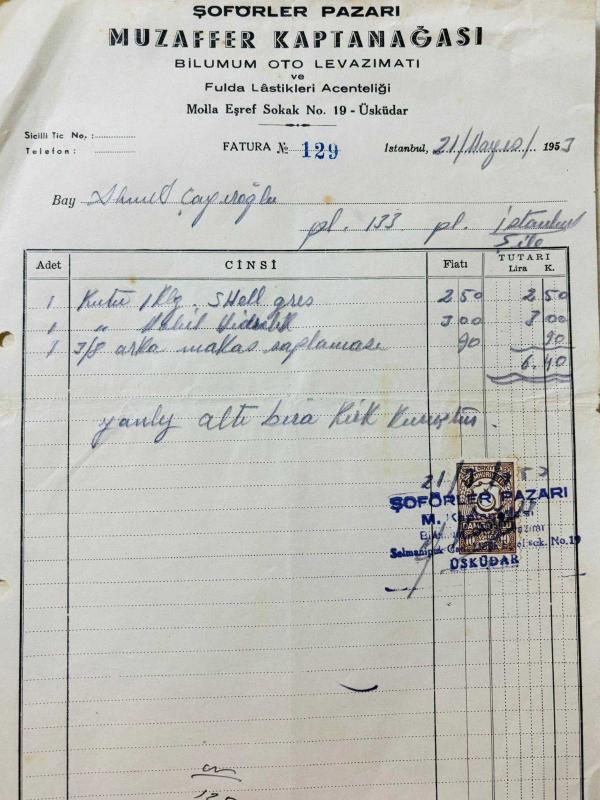 ŞOFÖRLER PAZARI
MUZAFFER KAPTANAĞASI
BİLUMUM OTO LEVAZIMATI
ve
Fulda Lâstikleri Acenteliği
Molla Eşref Sokak No. 19 - Üsküdar
Sicilli Tic No. :
Telefon :
FATURA № 129
Istanbul, 21/Mayıs/ 1953
Bay Ahmet Çayıroğlu
pl. 133 pl. İstanbul
Şile
Adet CİNSİ Fiatı TUTARI
Lira K.
1 Kutu 1 Klg. SHell gres 2 50 2 50
1 " Mobil Hidrolik 3 00 3 00
1 3/8 arka makas saplaması 90 90
6.40
yanlız altı lira Kırk Kuruştur.
21/ 53
ŞOFÖRLER PAZARI
M.
Selmanipak sok. No. 19
ÜSKÜDAR